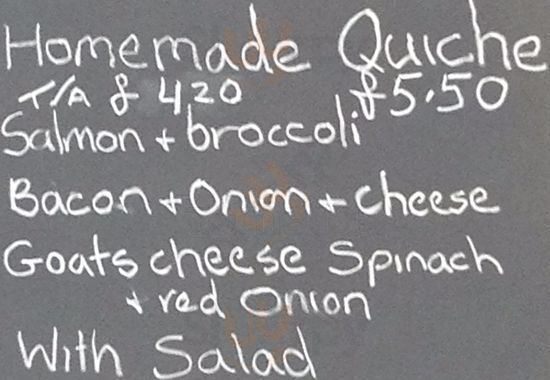 Homemade Quiche
T/A £ 420 £5.50
Salmon + broccoli
Bacon + Onion + cheese
Goats cheese Spinach
+ red Onion
With Salad